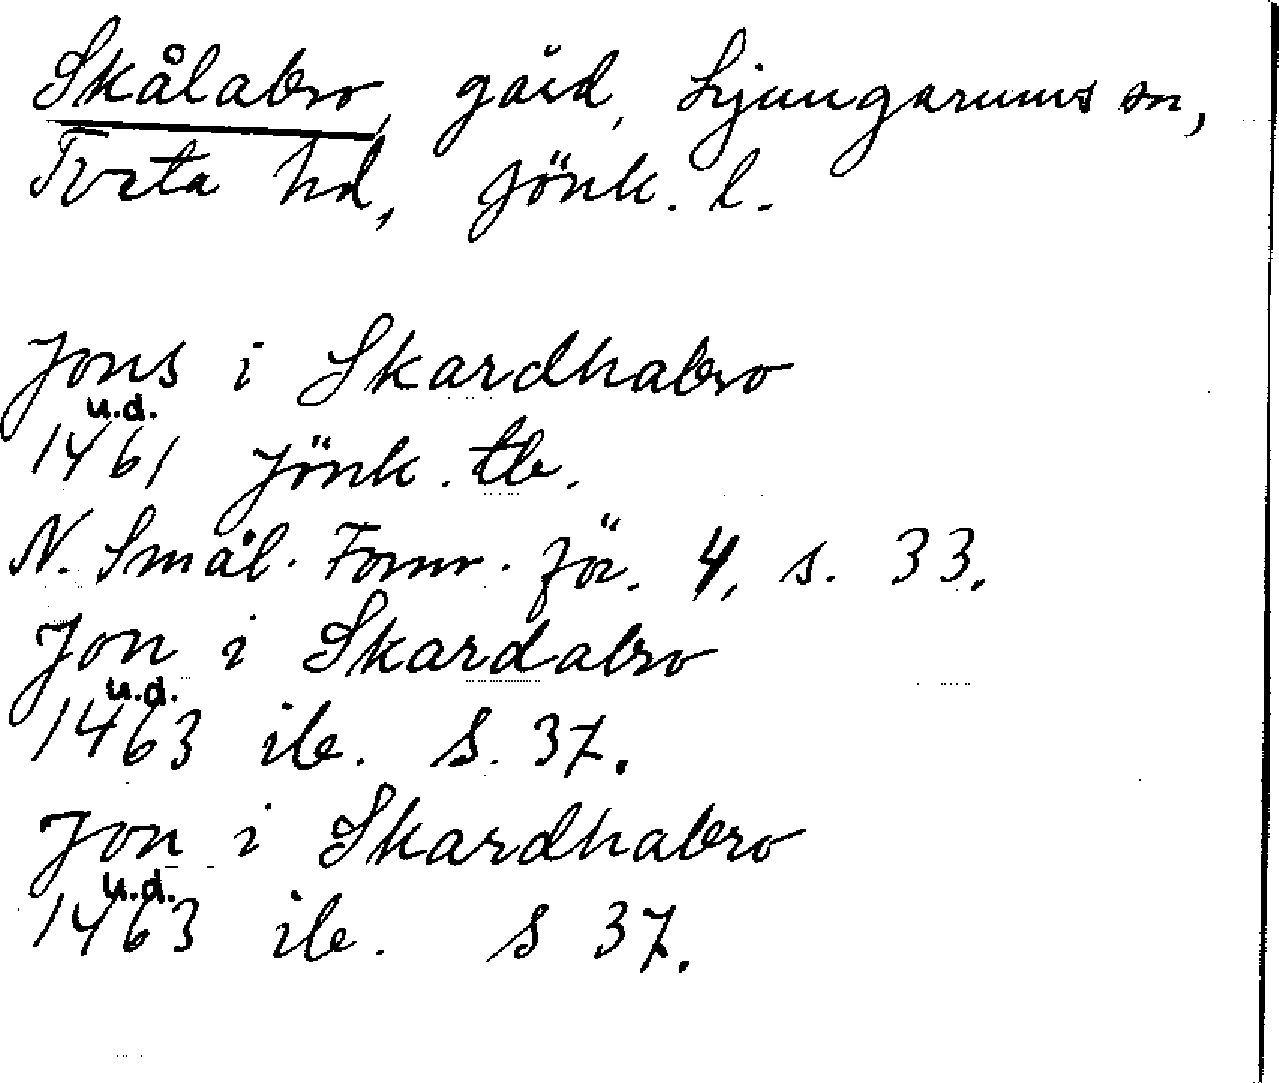 Skålabro, gård, Ljungarums sn,
Tveta hd, Jönk. l.
Jons i Skardhabro
u.d.
1461 Jönk. tb.
N. Smål. Fornv. för. 4, s. 33.
Jon i Skardabro
u.d.
1463 ib. S. 37.
Jon i Skardhabro
u.d.
1463 ib. s 37.